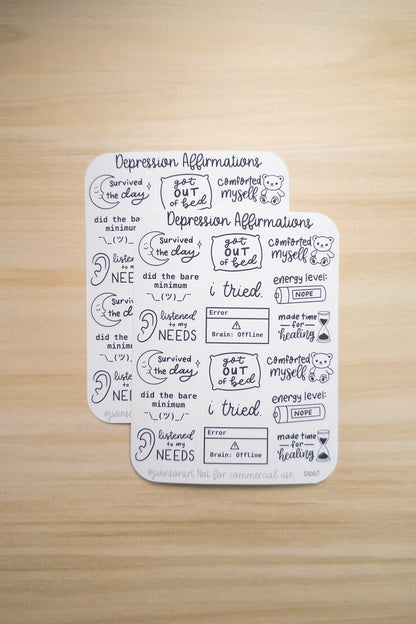 Depression Affirmations
Survived
the day
got
OUT
of bed
comforted
myself
did the bare
minimum
¯\_(ツ)
listened
to
NEEDS
Survived
the d
did the
minimum
¯\_(ツ)
liste
to
NEE
Depression Affirmations
Survived
the day
got
OUT
of bed
comforted
myself
did the bare
minimum
¯\_(ツ)_/¯
i tried.
energy level:
NOPE
listened
to my
NEEDS
Error
Brain: Offline
made time
for
healing
Survived
the day
got
OUT
of bed
comforted
myself
did the bare
minimum
¯\_(ツ)_/¯
i tried.
energy level:
NOPE
listened
to my
NEEDS
Error
Brain: Offline
made time
for
healing
Not for commercial use
S1007